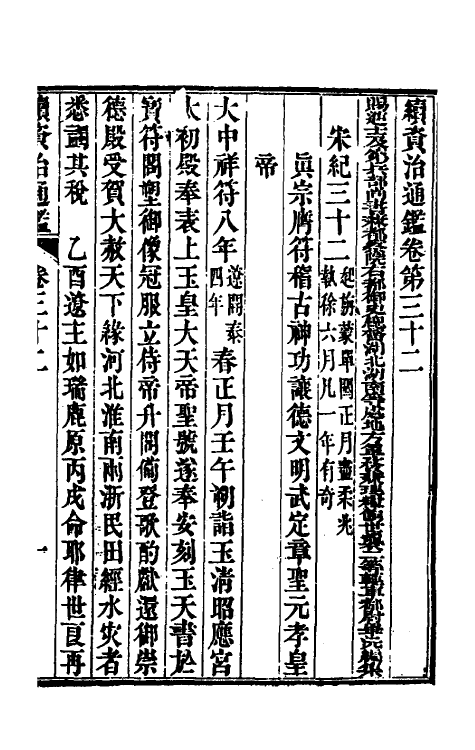 續資治通鑑卷第三十二
賜進士及第兵部尚書兼都察院右都御史總督湖北湖南等處地方軍務兼理糧餉世襲二等輕車都尉畢沅編集
宋紀三十二起旃蒙單閼正月盡柔兆執徐六月凡一年有奇
真宗膺符稽古神功讓德文明武定章聖元孝皇
帝
大中祥符八年遼開泰四年春正月壬午朔詣玉清昭應宮
太初殿奉表上玉皇大天帝聖號遂奉安刻玉天書於
寶符閣塑御像冠服立侍帝升閣備登歌酌獻還御崇
德殿受賀大赦天下緣河北淮南兩浙民田經水災者
悉蠲其稅 乙酉遼主如瑞鹿原丙戌命耶律世良再
續資治通鑑 卷三十二 一